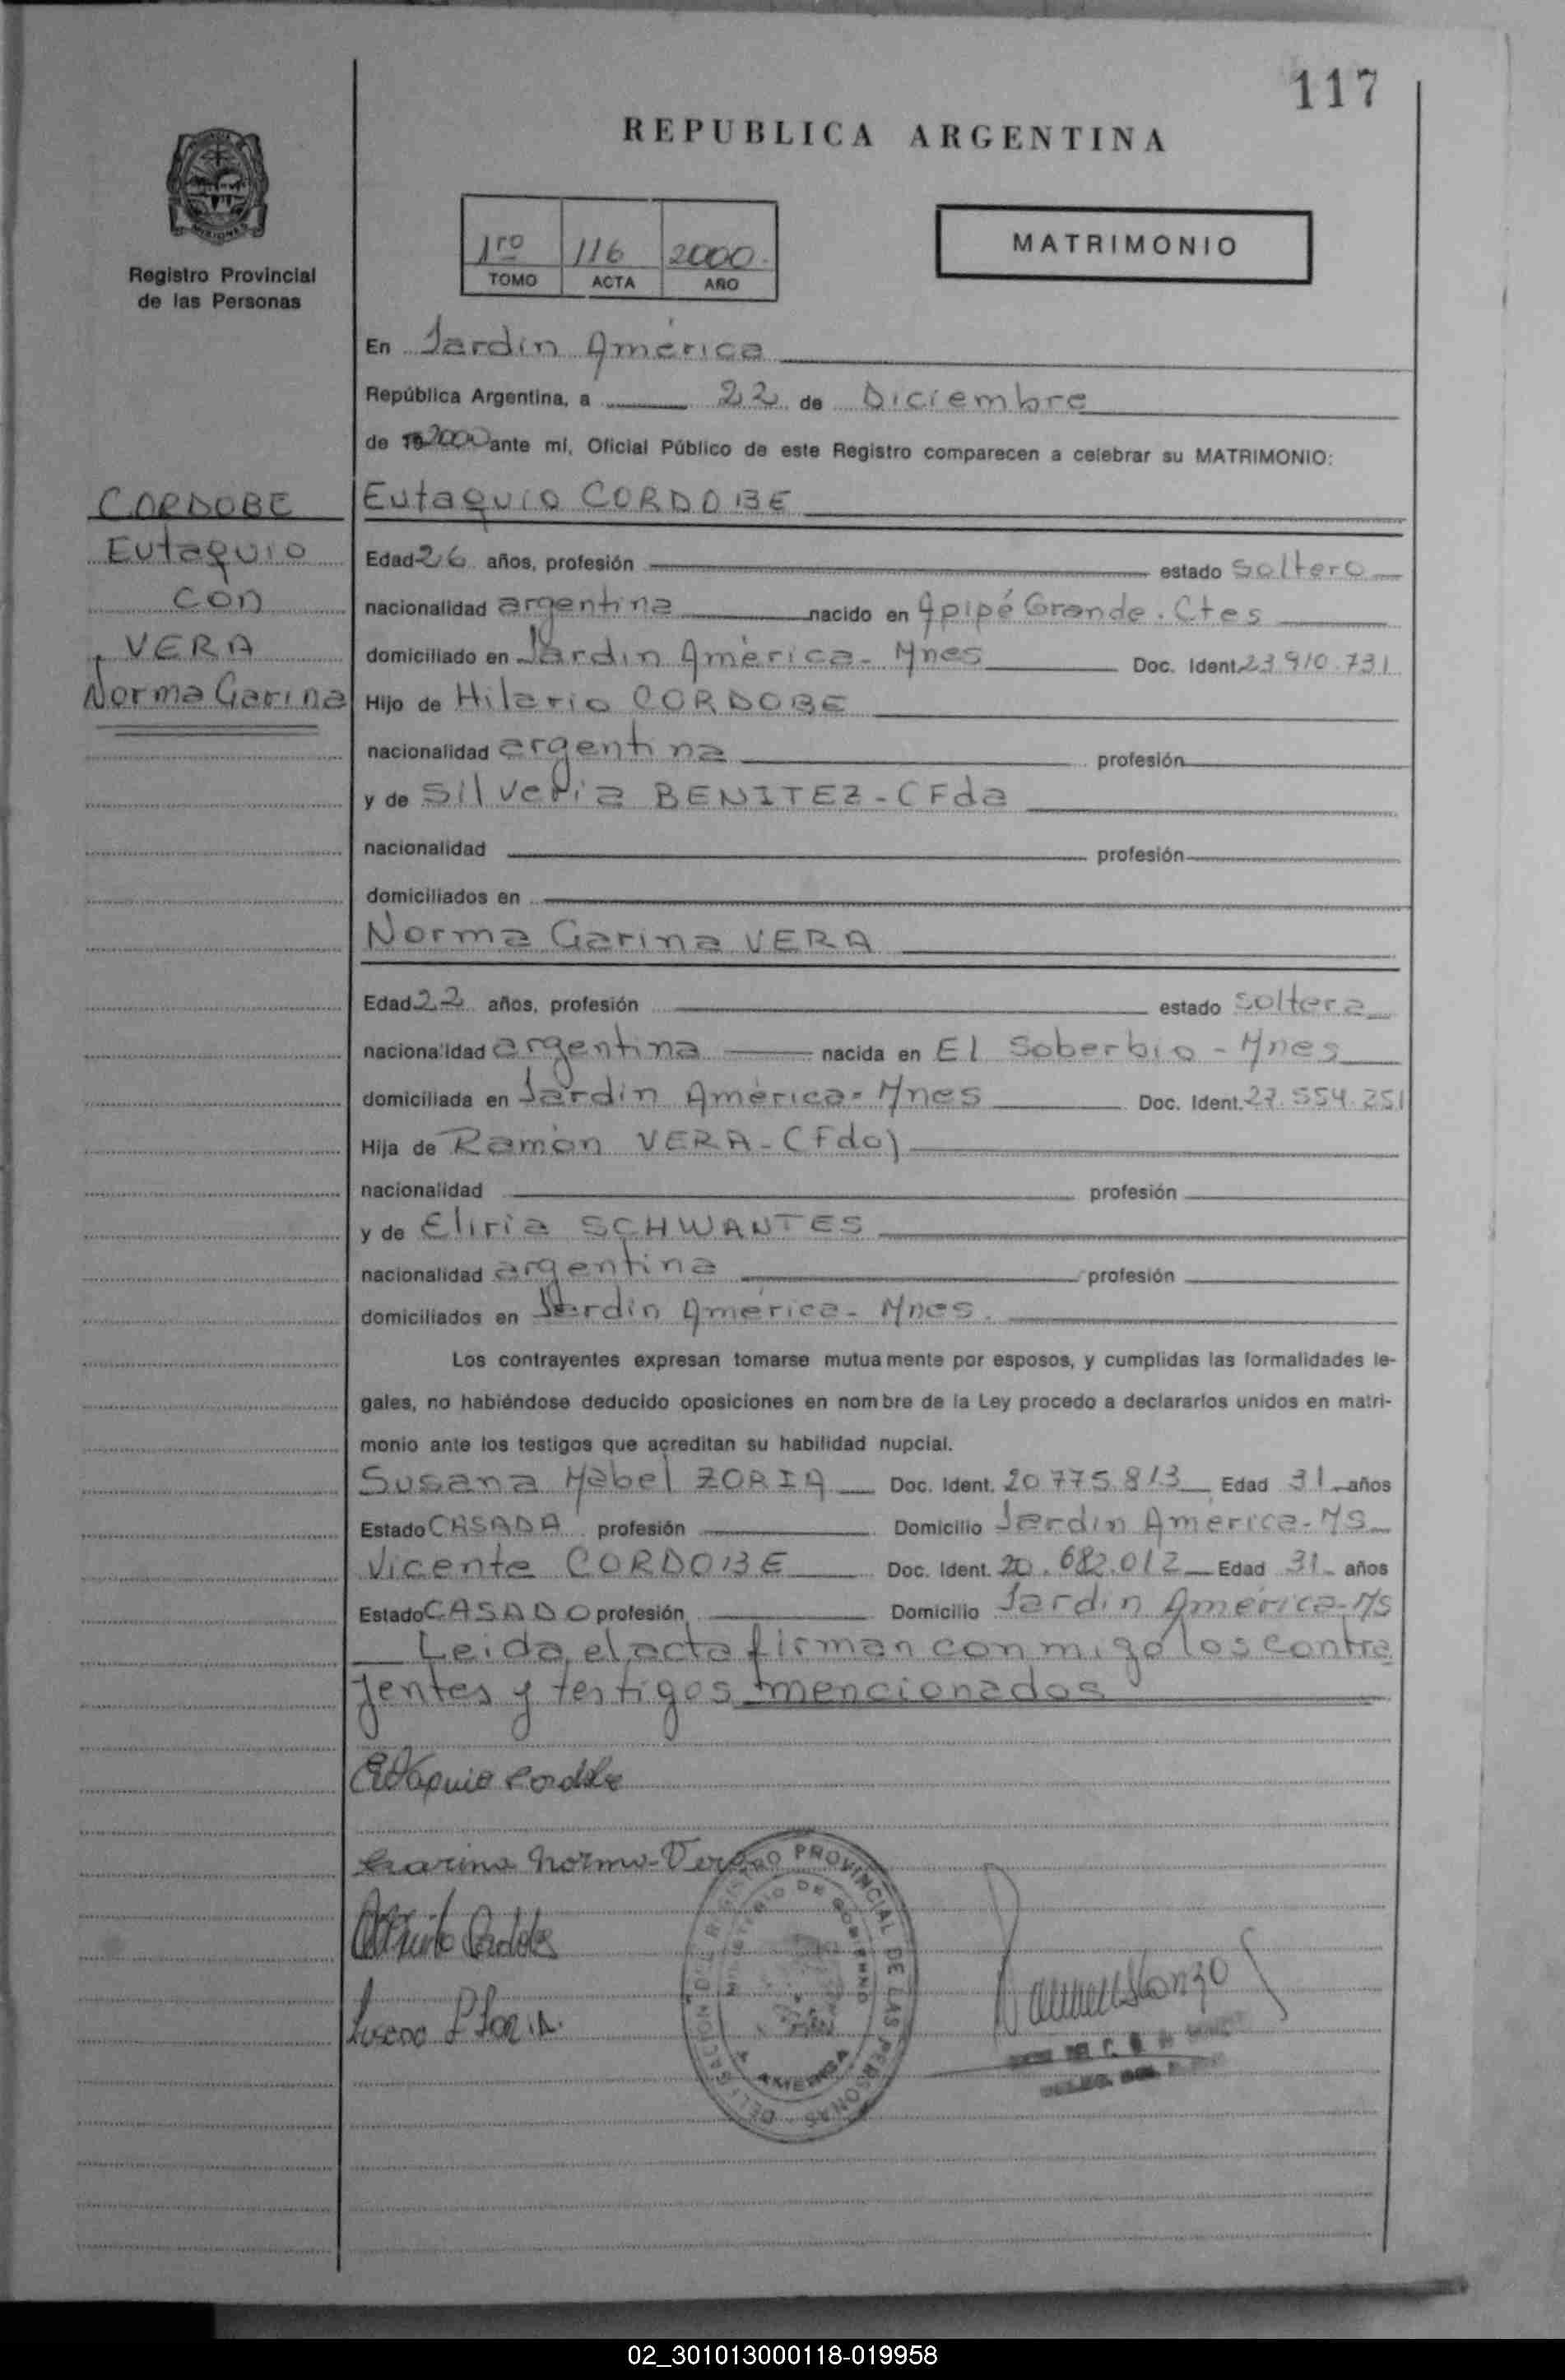 117
REPUBLICA ARGENTINA
Registro Provincial
de las Personas
1ro 116 2000
TOMO ACTA AÑO
MATRIMONIO
En Jardín América
República Argentina, a 22 de Diciembre
de 19 2000 ante mí, Oficial Público de este Registro comparecen a celebrar su MATRIMONIO:
CORDOBE
Eutaquio
con
VERA
Norma Garina
Eutaquio CORDOBE
Edad 26 años, profesión estado soltero
nacionalidad argentina nacido en Apipé Grande. Ctes
domiciliado en Jardín América - Mnes Doc. Ident. 23.910.731
Hijo de Hilario CORDOBE
nacionalidad argentina profesión
y de Silveria BENITEZ - (Fda
nacionalidad profesión
domiciliados en
Norma Garina VERA
Edad 22 años, profesión estado soltera
nacionalidad argentina nacida en El Soberbio - Mnes
domiciliada en Jardín América - Mnes Doc. Ident. 27.554.251
Hija de Ramón VERA - (Fdo)
nacionalidad profesión
y de Eliria SCHWANTES
nacionalidad argentina profesión
domiciliados en Jardín América - Mnes.
Los contrayentes expresan tomarse mutuamente por esposos, y cumplidas las formalidades le-
gales, no habiéndose deducido oposiciones en nombre de la Ley procedo a declararlos unidos en matri-
monio ante los testigos que acreditan su habilidad nupcial.
Susana Mabel ZORIA Doc. Ident. 20.775.813 Edad 31 años
Estado CASADA profesión Domicilio Jardín América - Ms
Vicente CORDOBE Doc. Ident. 20.682.012 Edad 31 años
Estado CASADO profesión Domicilio Jardín América - Ms
Leida el acta firman conmigo los contra
jentes y testigos mencionados
Eutaquio Cordobe
Garina Norma Vera
REGISTRO PROVINCIAL DE LAS PERSONAS - DELEGACION
MINISTERIO DE GOBIERNO
AMERICA
02_301013000118-019958